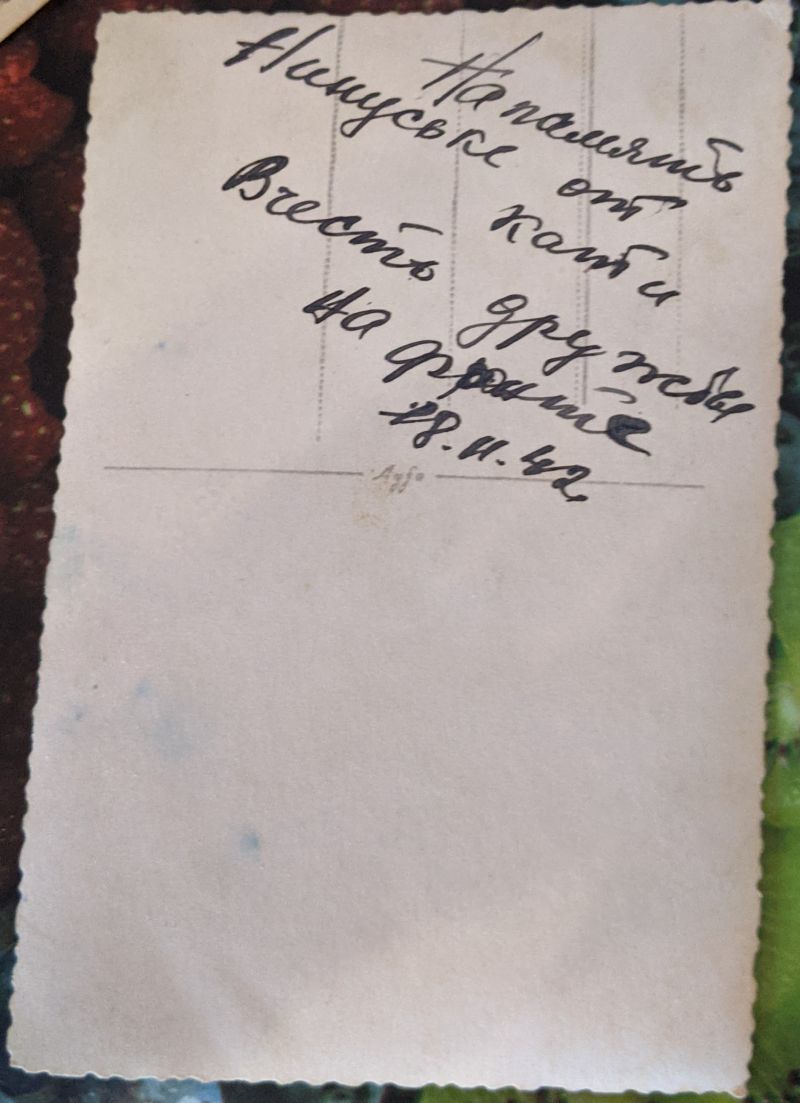 На память
Нинуське от
кати
Вчесть дружбы
на фронте
18.11.42.